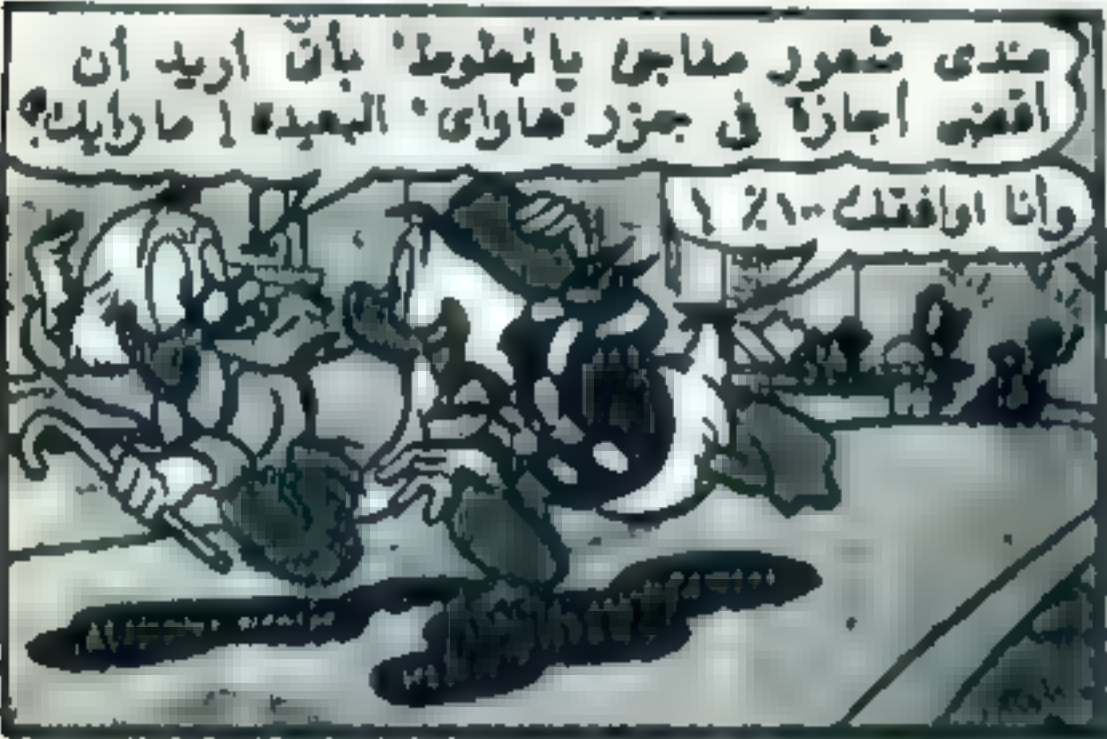 عندى شعور مفاجئ يا "بطوط" بأنّ اريد أن
اقضى اجازة فى جزر "هاواى" البعيده ! ما رايك؟
وانا اوافقك ١٠٠٪ !